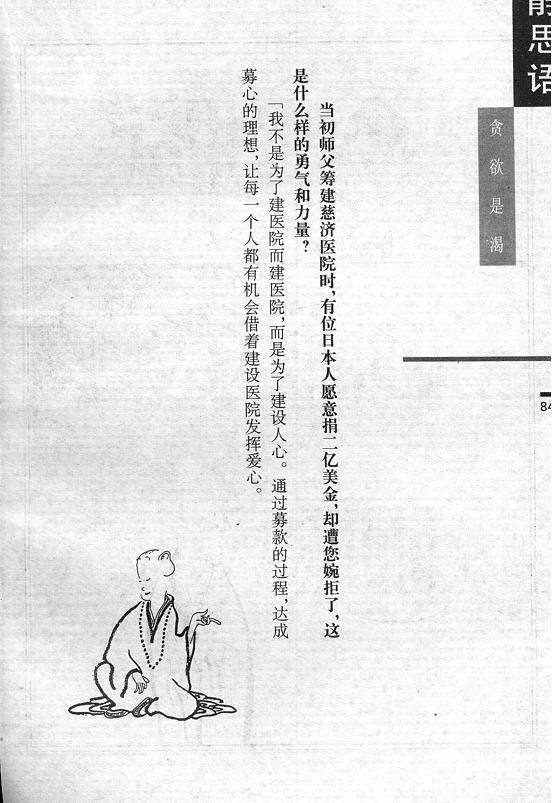 静思语
贪欲是渴
84
当初师父筹建慈济医院时，有位日本人愿意捐二亿美金，却遭您婉拒了，这
是什么样的勇气和力量？
「我不是为了建医院而建医院，而是为了建设人心。通过募款的过程，达成
募心的理想，让每一个人都有机会借着建设医院发挥爱心。